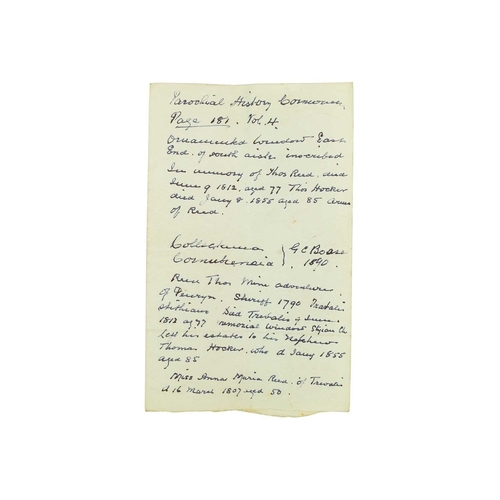 Parochial History Cornwall,
Page 181. Vol. 4.
Ornamented Window East
End. of south aisle inscribed
In memory of Thos Reed. died
June 9 1812, aged 77 Thos Hocker
died Jany 8. 1855 aged 85 Arms
of Reed.
Collectanea } G C Boase
Cornubensia } 1890.
Reed Thos Mine adventurer
of Penryn. Sheriff 1790
Stithians Died Trevales 9 June
1812 ag 77 memorial window Stythian Ch
left his estates to his Nephew
Thomas Hocker. who d Jany 1855
aged 85
Miss Anna Maria Reed. of Trevales
d 16 March 1807 aged 50.